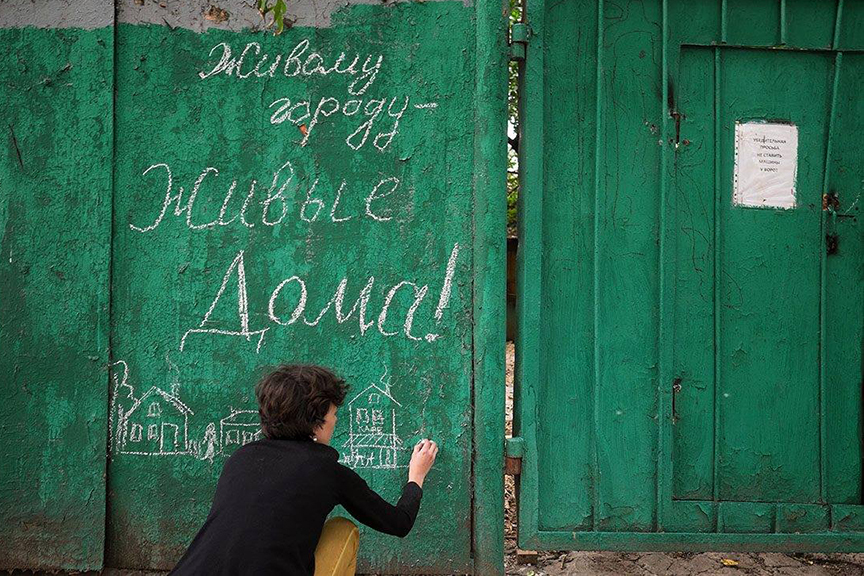 Живому
городу –
Живые
Дома!
КАФЕ
УБЕДИТЕЛЬНАЯ
ПРОСЬБА
НЕ СТАВИТЬ
МАШИНЫ
У ВОРОТ